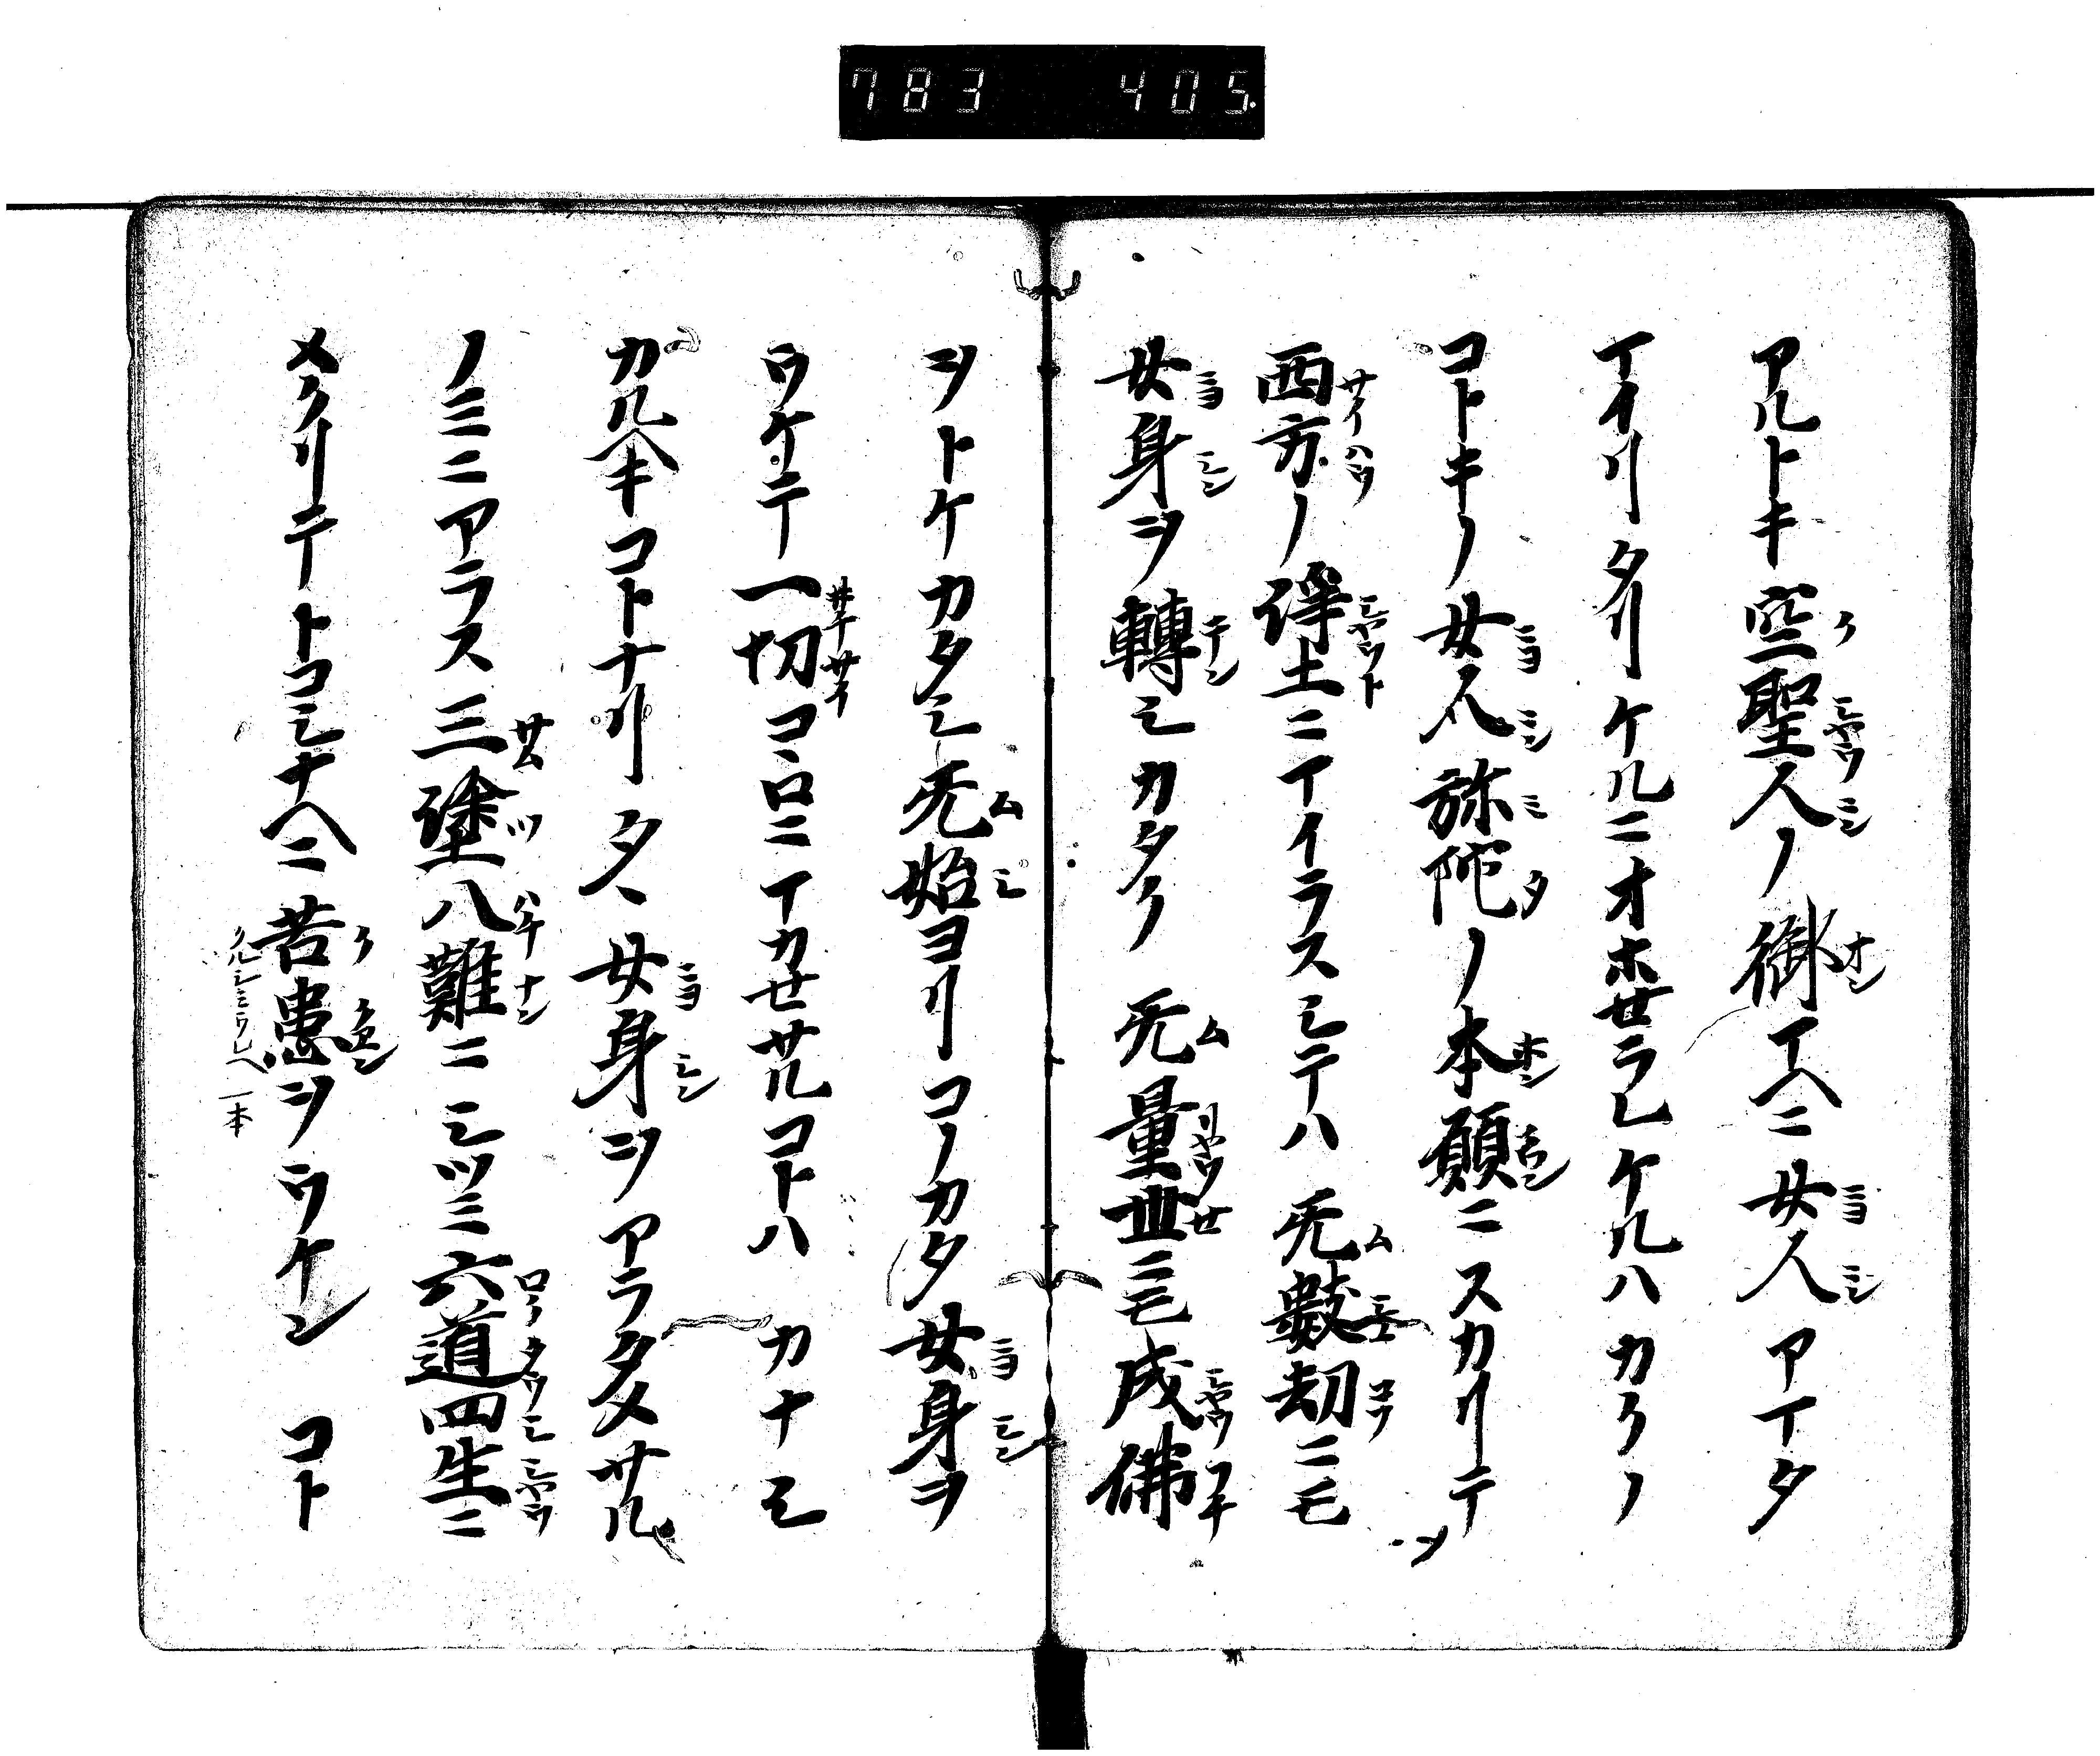 783 405
アルトキ空聖人ノ御マヘニ女人アマタ
マイリタリケルニオホセラレケルハカクノ
コトキノ女人弥陀ノ本願ニスカリテ
西方ノ浄土ニマイラスシテハ无數劫ニモ
女身ヲ轉シカタク无量世ニモ成佛
ヲトケカタシ无始ヨリコノカタ女身ヲ
ウケテ一切コヽロニマカセサルコトハカナシ
カルヘキコトナリタヽ女身ヲアラタメサル
ノミニアラス三塗八難ニシツミ六道四生ニ
メクリテトコシナヘニ苦患ヲウケンコト
一本